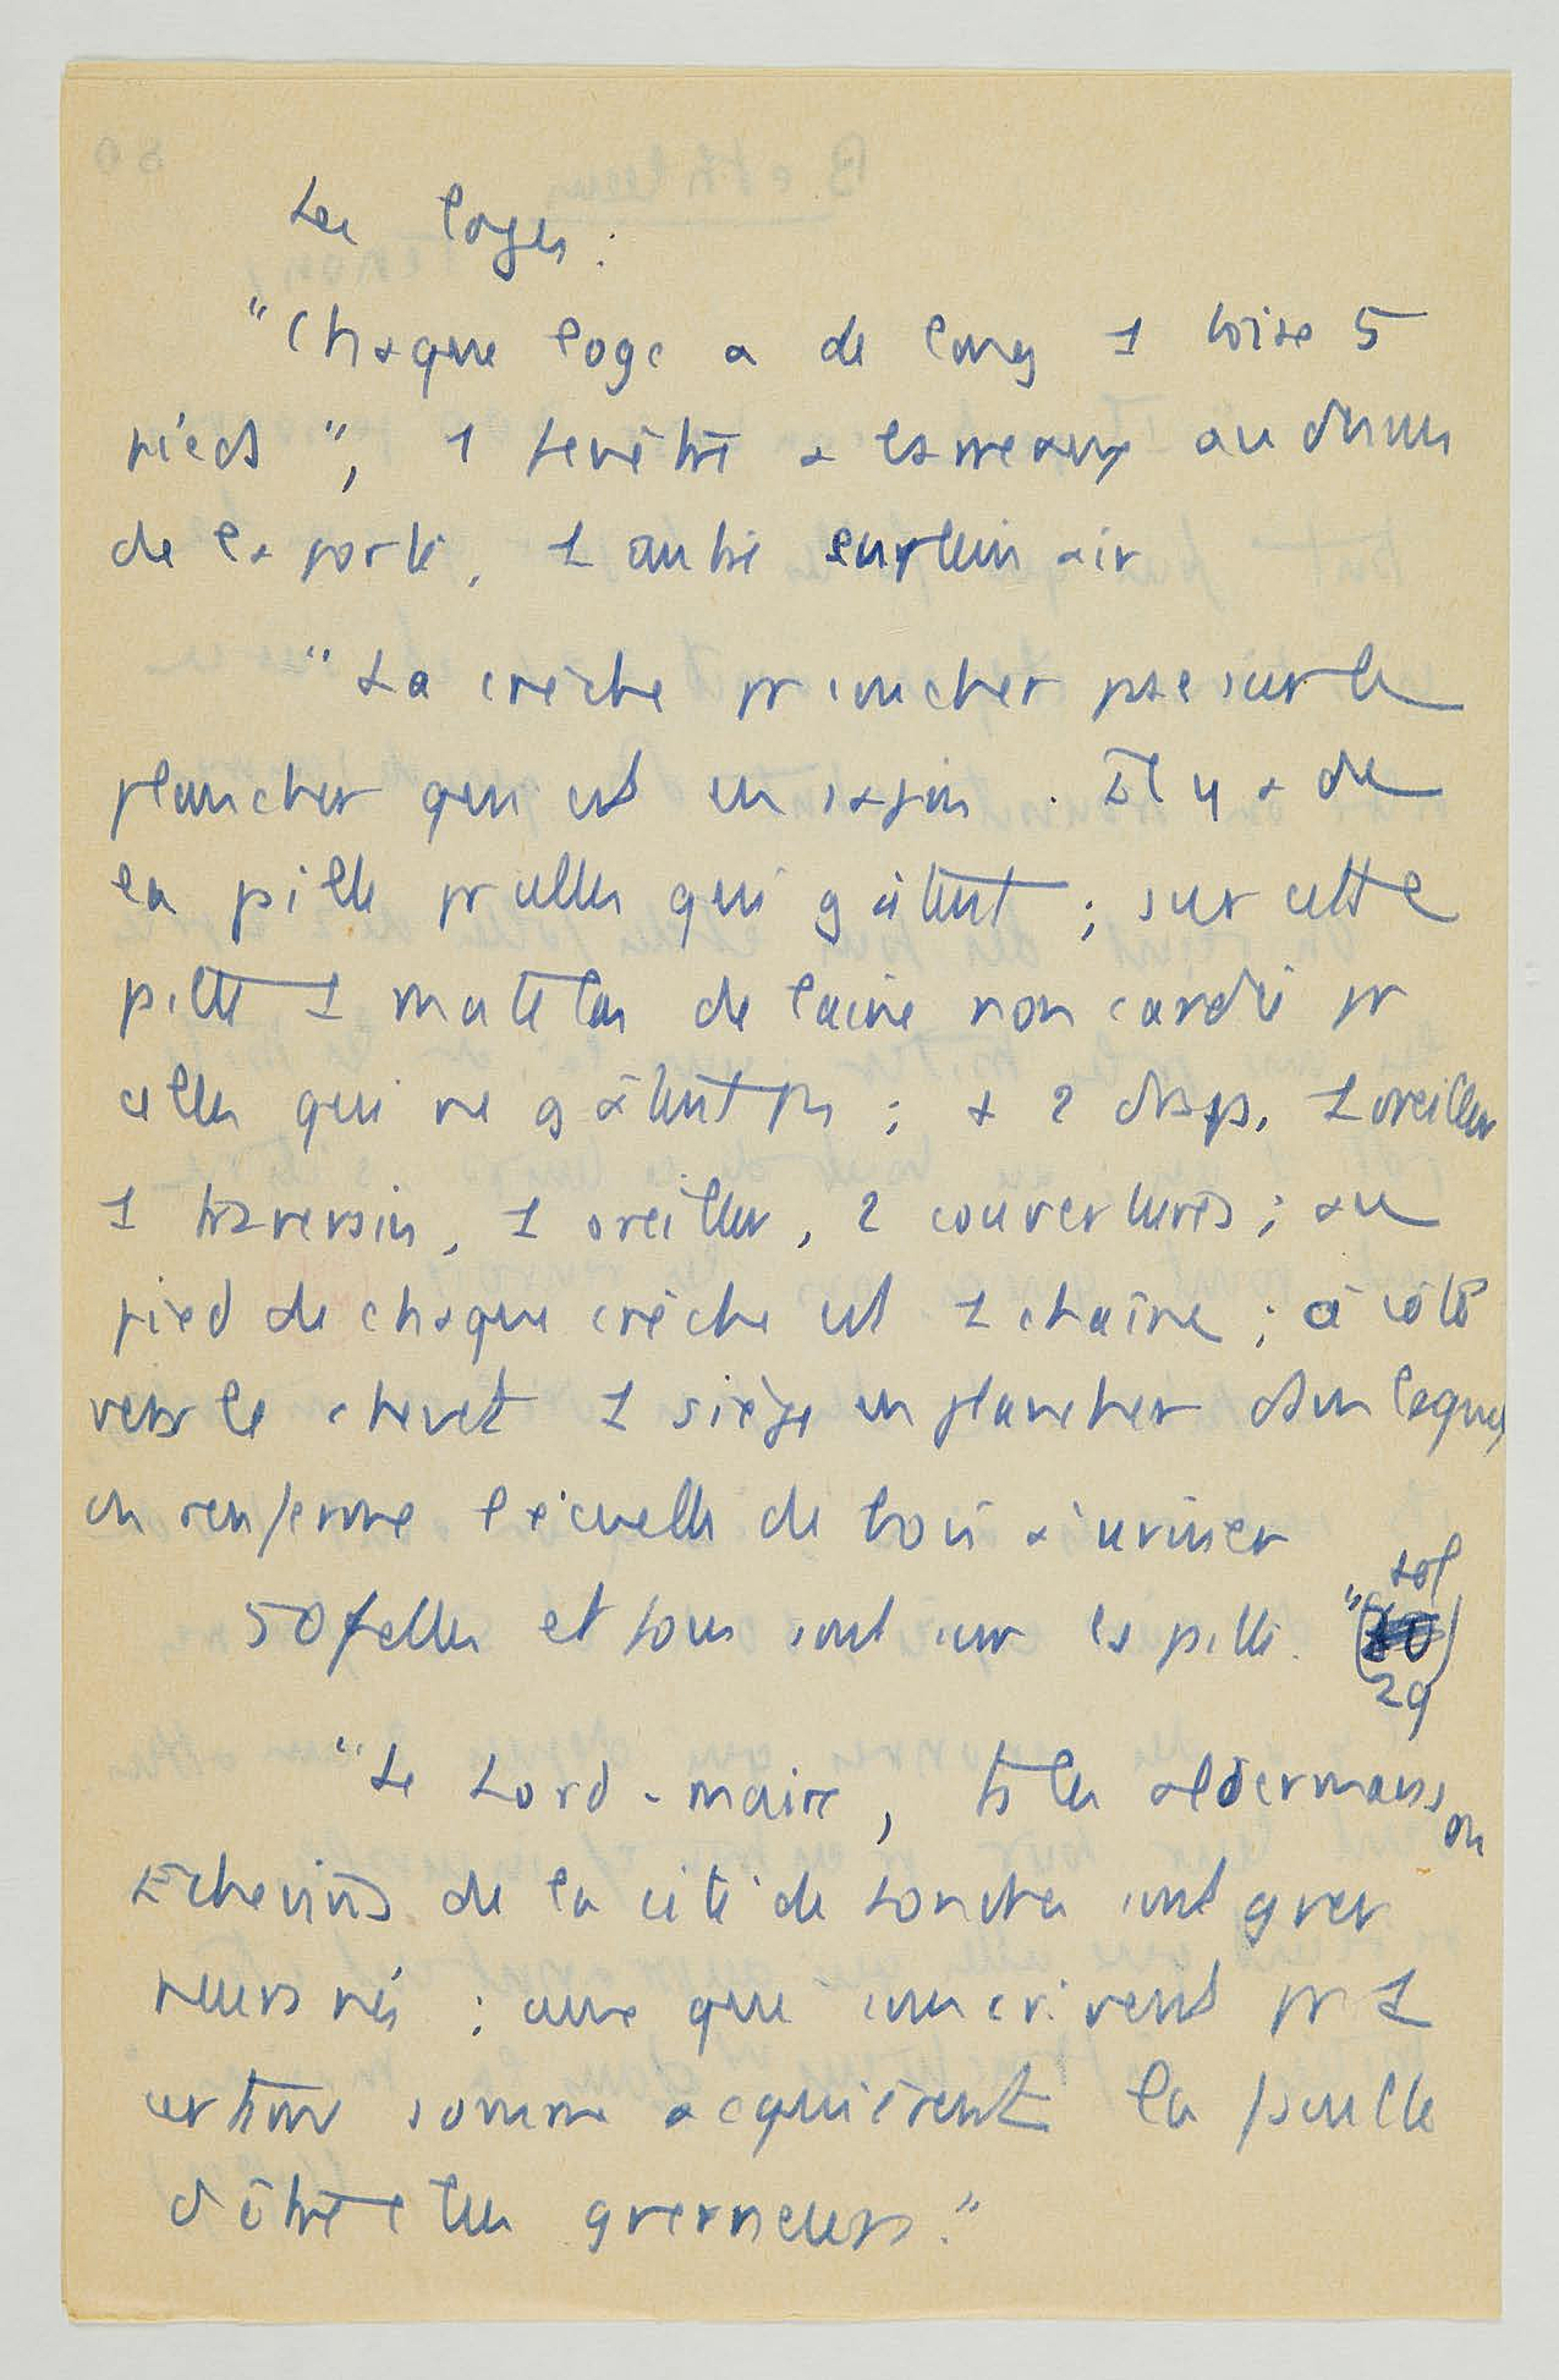 Les loges :
"Chaque loge a de long 1 toise 5
pieds", 1 fenêtre à barreaux au dessus
de la porte, 1 autre en plein air
"La crèche pr coucher pose sur le
plancher qui est en sapin. Il y a de
la paille pr celles qui gâtent ; sur cette
paille 1 matelas de laine non cardée pr
celles qui ne gâtent pas ; a 2 draps, 1 oreiller
1 traversin, 1 oreiller, 2 couvertures ; au
pied de chaque crèche est 1 chaîne ; à côté
vers le chevet 1 siège en plancher dans lequel
on renferme l'écuelle de bois à uriner
50 folles et fous sont sur la paille. " (
fol
29)
"Le Lord-maire, ts les aldermans ou
Echevins de la cité de Londres sont gver
neurs nés ; ceux qui souscrivent pr 1
certaine somme acquièrent la faculté
d'être élus gverneurs."